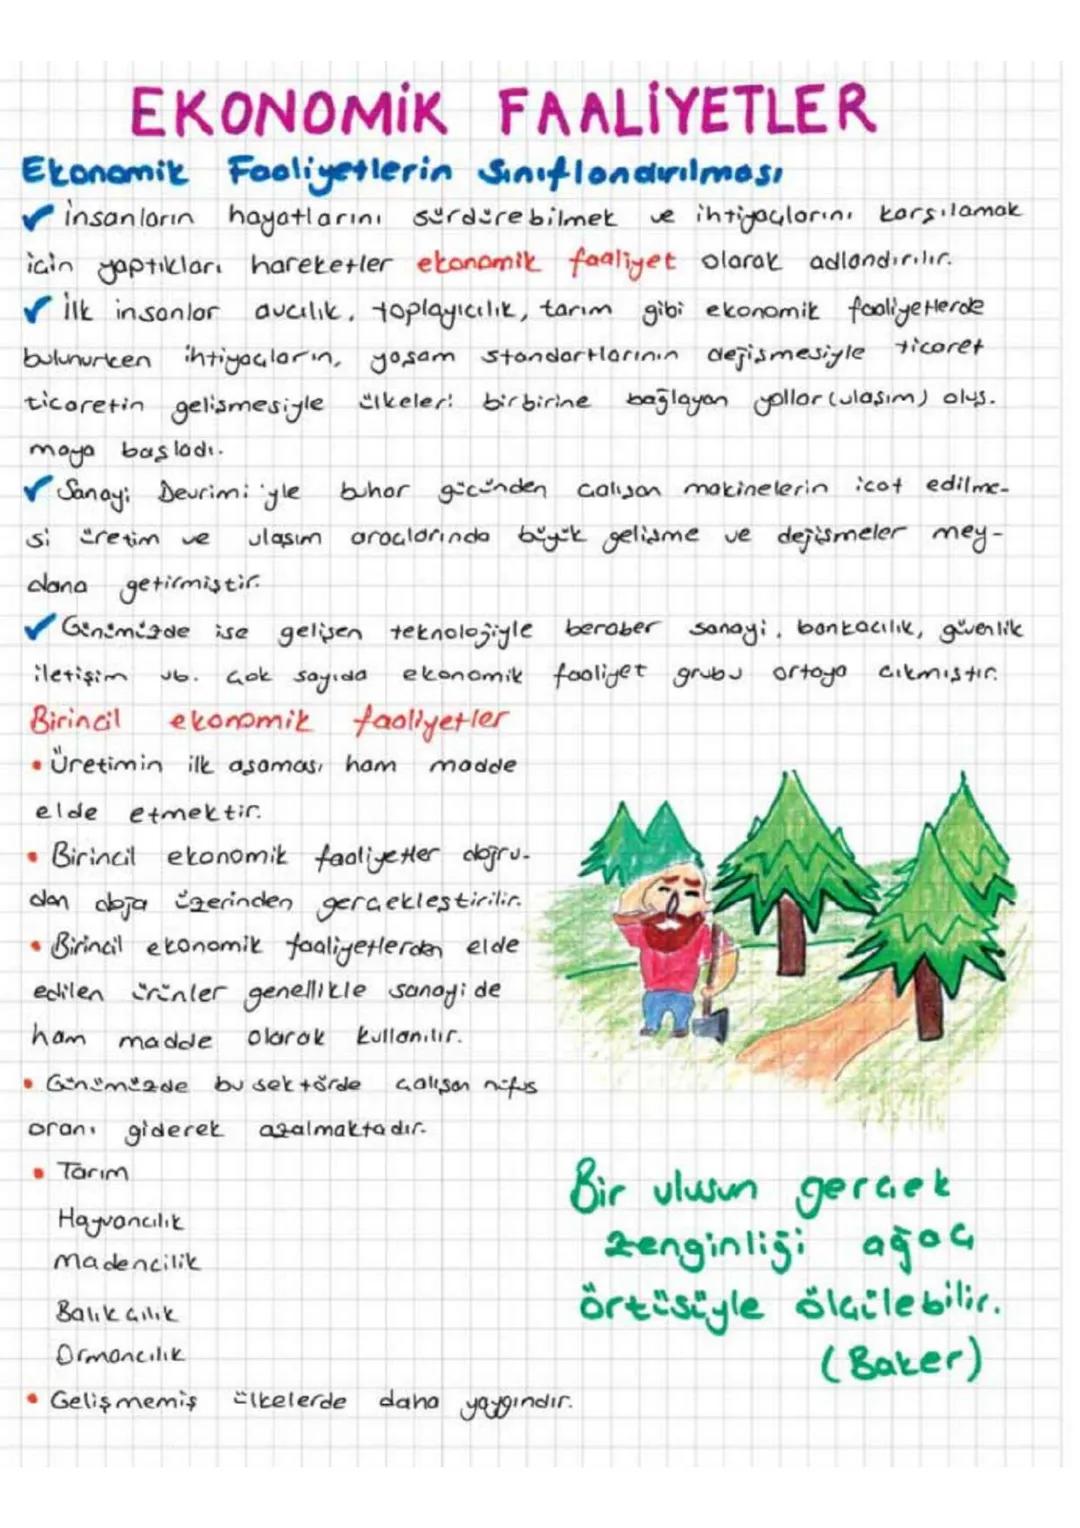 EKONOMİK FAALİYETLER
Ekonomik Faaliyetlerin Sınıflandırılması
✓ insanların hayatlarını sürdürebilmek ve ihtiyaçlarını karşılamak
için yaptıkları hareketler ekonomik faaliyet olarak adlandırılır.
✓ İlk insanlar avcılık, toplayıcılık, tarım gibi ekonomik faaliyetlerde
bulunurken ihtiyaçların, yaşam standartlarının değişmesiyle ticaret
ticaretin gelişmesiyle ülkeleri birbirine bağlayan yollar (ulaşım) oluş-
maya başladı.
✓ Sanayi Devrimi'yle buhar gücünden çalışan makinelerin icat edilme-
si üretim ve ulaşım araçlarında büyük gelişme ve değişmeler mey-
dana getirmiştir.
✓ Günümüzde ise gelişen teknolojiyle beraber sanayi, bankacılık, güvenlik
iletişim vb. çok sayıda ekonomik faaliyet grubu ortaya çıkmıştır.
Birincil ekonomik faaliyetler
• Üretimin ilk aşaması ham madde
elde etmektir.
• Birincil ekonomik faaliyetler doğru-
dan doğa üzerinden gerçekleştirilir.
• Birincil ekonomik faaliyetlerden elde
edilen ürünler genellikle sanayi de
ham madde olarak kullanılır.
• Günümüzde bu sektörde çalışan nüfus
oranı giderek azalmaktadır.
• Tarım
Hayvancılık
Madencilik
Balıkçılık
Ormancılık
• Gelişmemiş ülkelerde daha yaygındır.
Bir ulusun gerçek
zenginliği ağaç
örtüsüyle ölçülebilir.
(Baker)